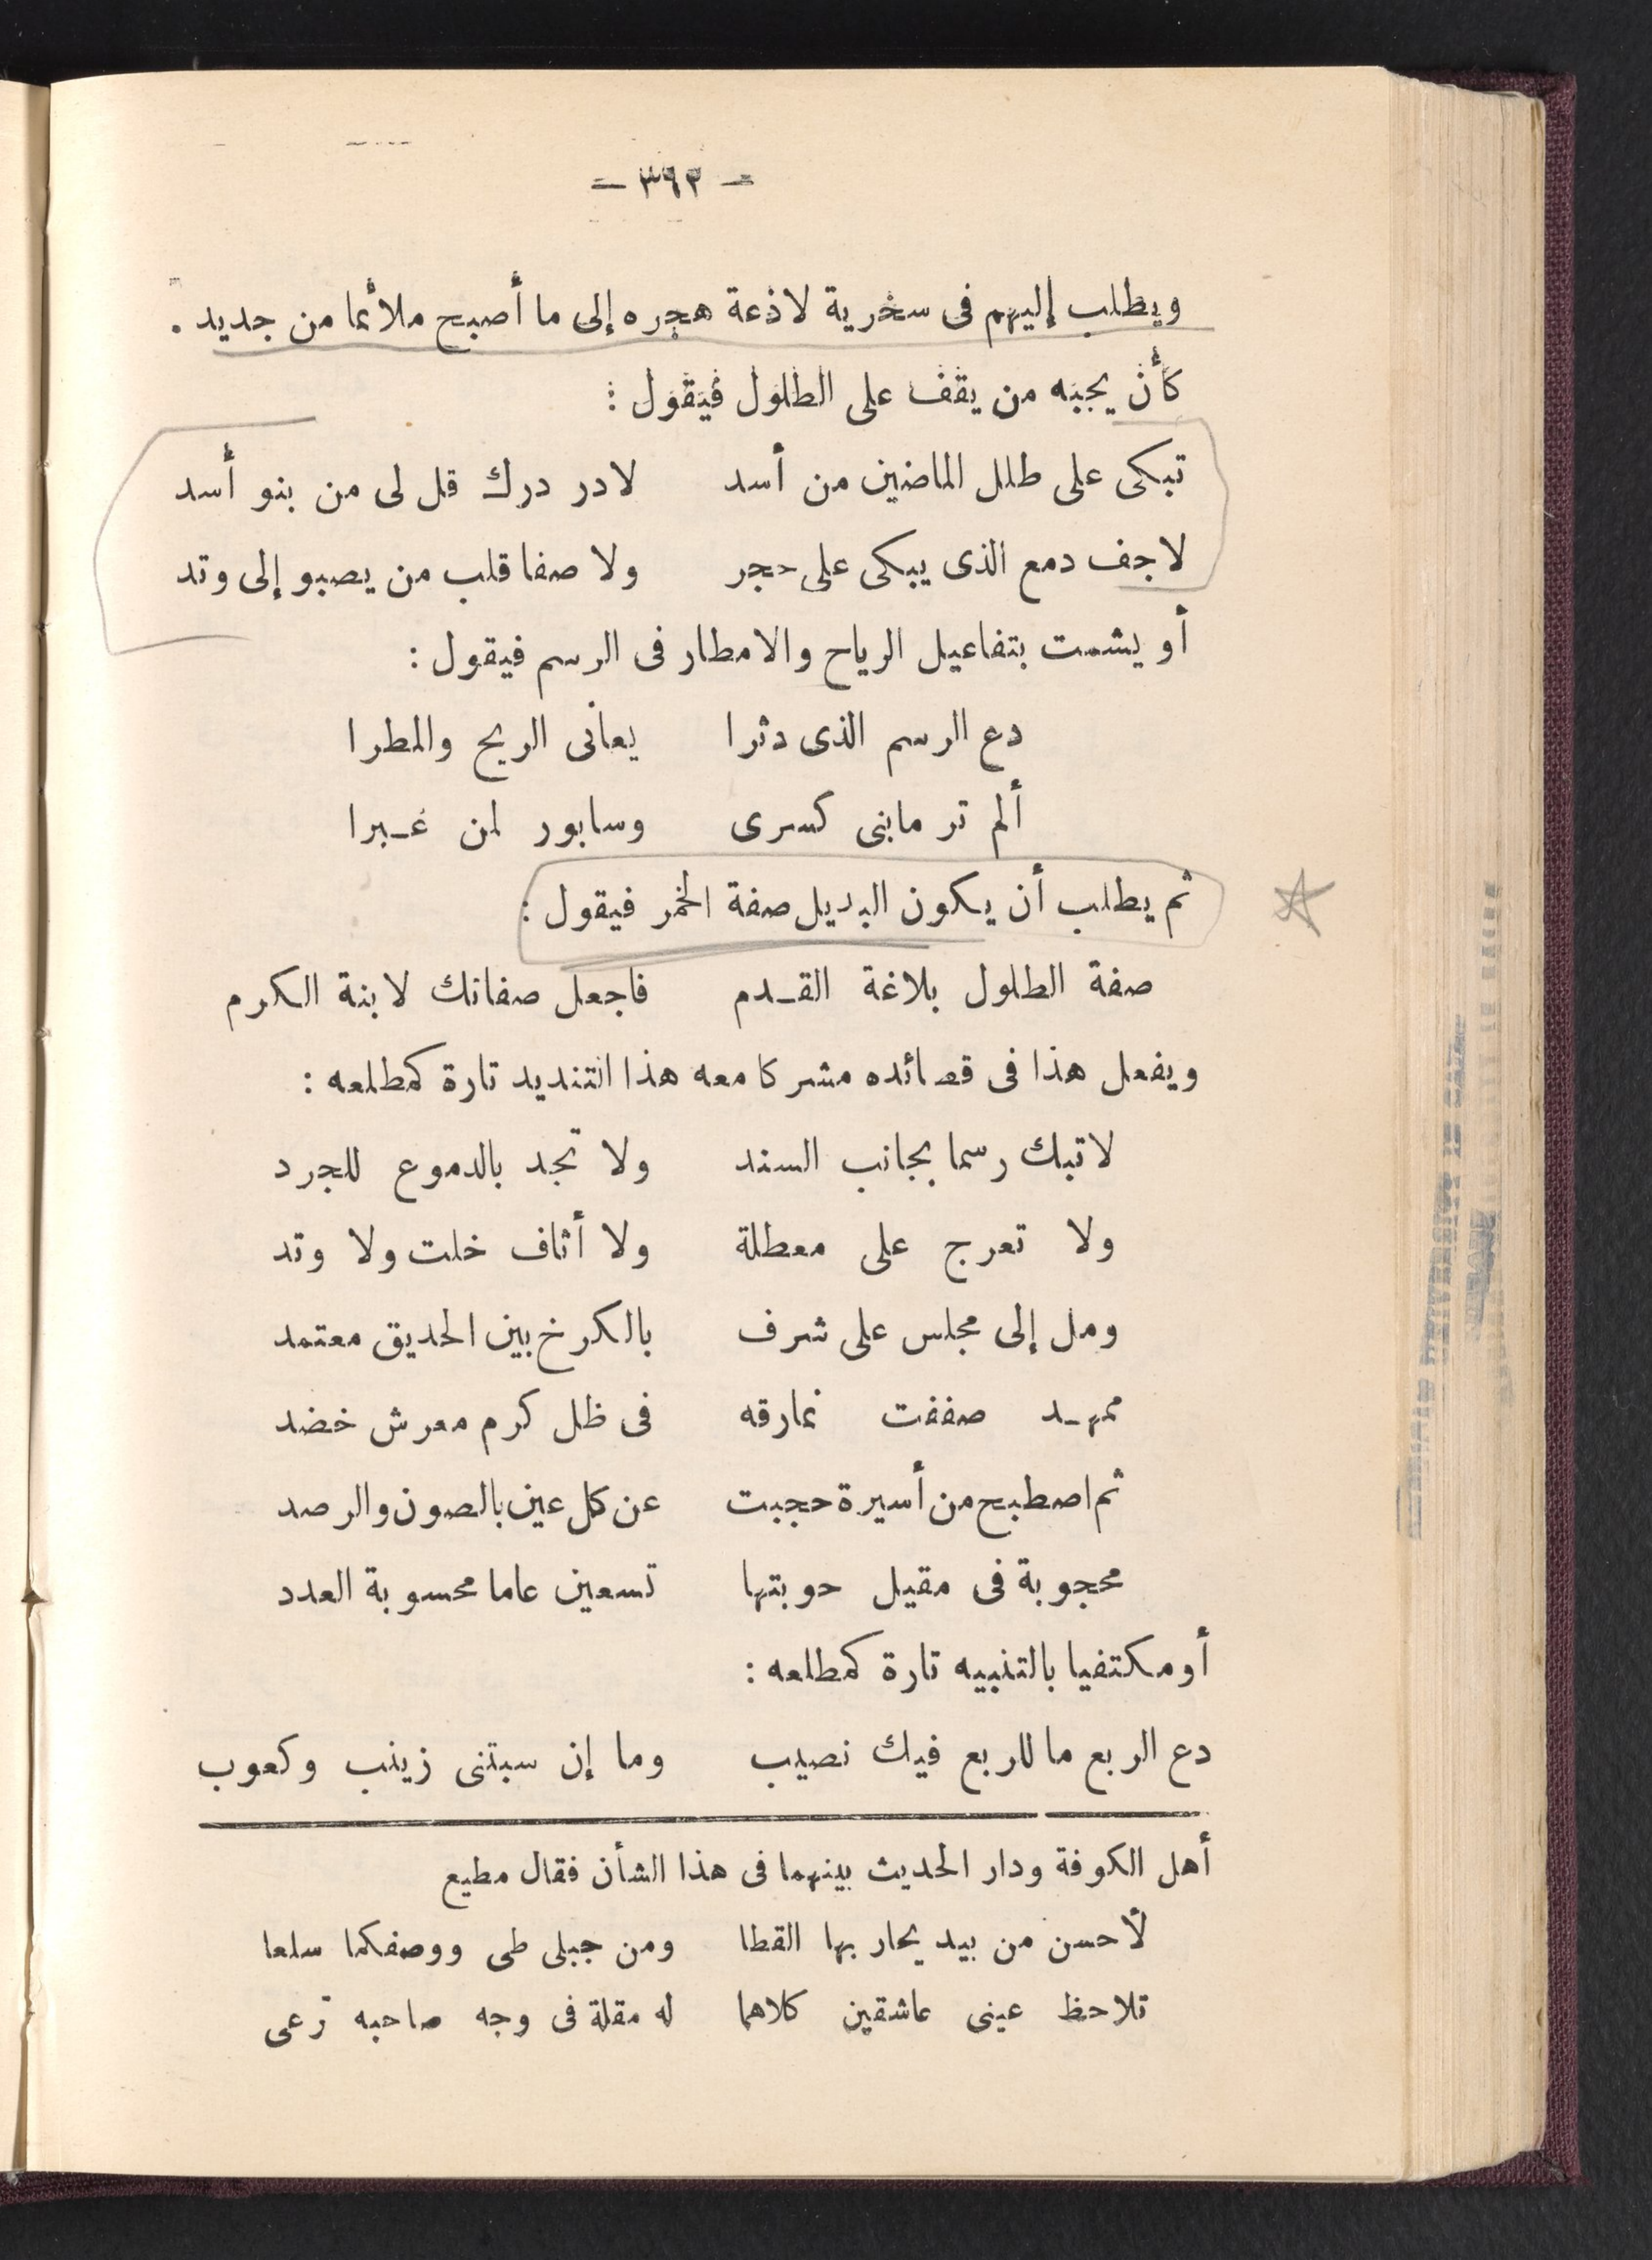 — ٣٦٣ —
ويطلب إليهم فى سخرية لاذعة هجره إلى ما أصبح ملائما من جديد .
كأن يجبه من يقف على الطلول فيقول :
تبكى على طلل الماضين من أسد لادر درك قل لى من بنو أسد
لاجف دمع الذى يبكى على حجر ولا صفا قلب من يصبو إلى وتد
أو يشمت بتفاعيل الرياح والامطار فى الرسم فيقول :
دع الرسم الذى دثرا يعانى الريح والمطرا
ألم تر مابنى كسرى وسابور لمن غبرا
ثم يطلب أن يكون البديل صفة الخمر فيقول :
صفة الطلول بلاغة القدم فاجعل صفاتك لابنة الكرم
ويفعل هذا فى قصائده مشركا معه هذا التنديد تارة كمطلعه :
لاتبك رسما بجانب السند ولا تجد بالدموع للجرد
ولا تعرج على معطلة ولا أثاف خلت ولا وتد
ومل إلى مجلس على شرف بالكرخ بين الحديق معتمد
ممهد صففت نمارقه فى ظل كرم معرش خضد
ثم اصطبح من أسيرة حجبت عن كل عين بالصون والرصد
محجوبة فى مقيل حوبتها تسعين عاما محسوبة العدد
أو مكتفيا بالتنبيه تارة كمطلعه :
دع الربع ما للربع فيك نصيب وما إن سبتنى زينب وكعوب
أهل الكوفة ودار الحديث بينهما فى هذا الشأن فقال مطيع
لأحسن من بيد يحار بها القطا ومن جبلى طى ووصفكما سلعا
تلاحظ عينى عاشقين كلاهما له مقلة فى وجه صاحبه ترعى